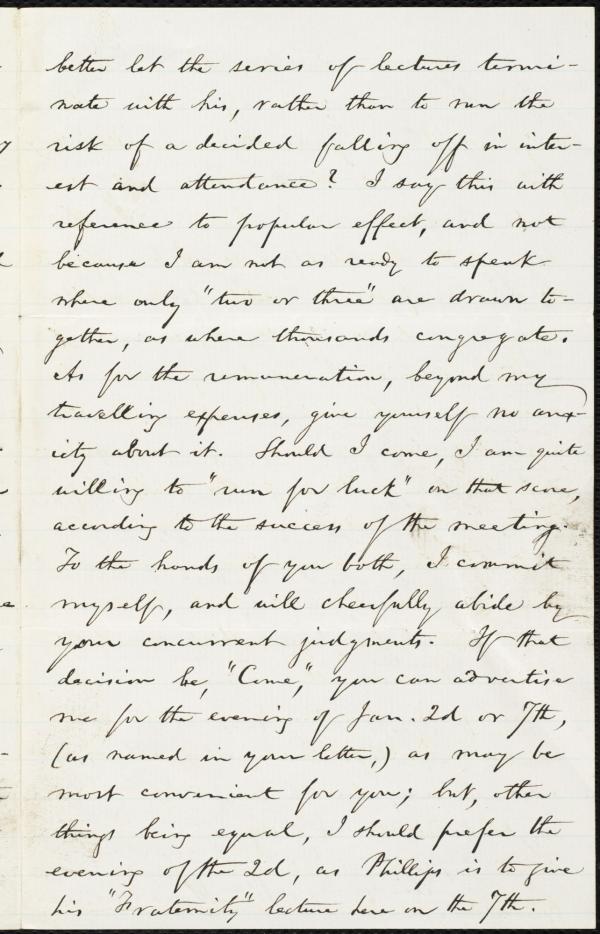 better let the series of lectures termi-
nate with his, rather than to run the
risk of a decided falling off in inter-
est and attendance? I say this with
reference to popular effect, and not
because I am not as ready to speak
where only "two or three" are drawn to-
gether, as where thousands congregate.
As for the remuneration, beyond my
travelling expenses, give yourself no anx-
iety about it. Should I come, I am quite
willing to "run for luck" on that score,
according to the success of the meeting.
To the hands of you both, I commit
myself, and will cheerfully abide by
your concurrent judgments. If that
decision be, "Come," you can advertise
me for the evening of Jan. 2d or 7th,
(as named in your letter,) as may be
most convenient for you; but, other
things being equal, I should prefer the
evening of the 2d, as Phillips is to give
his "Fraternity" lecture here on the 7th.